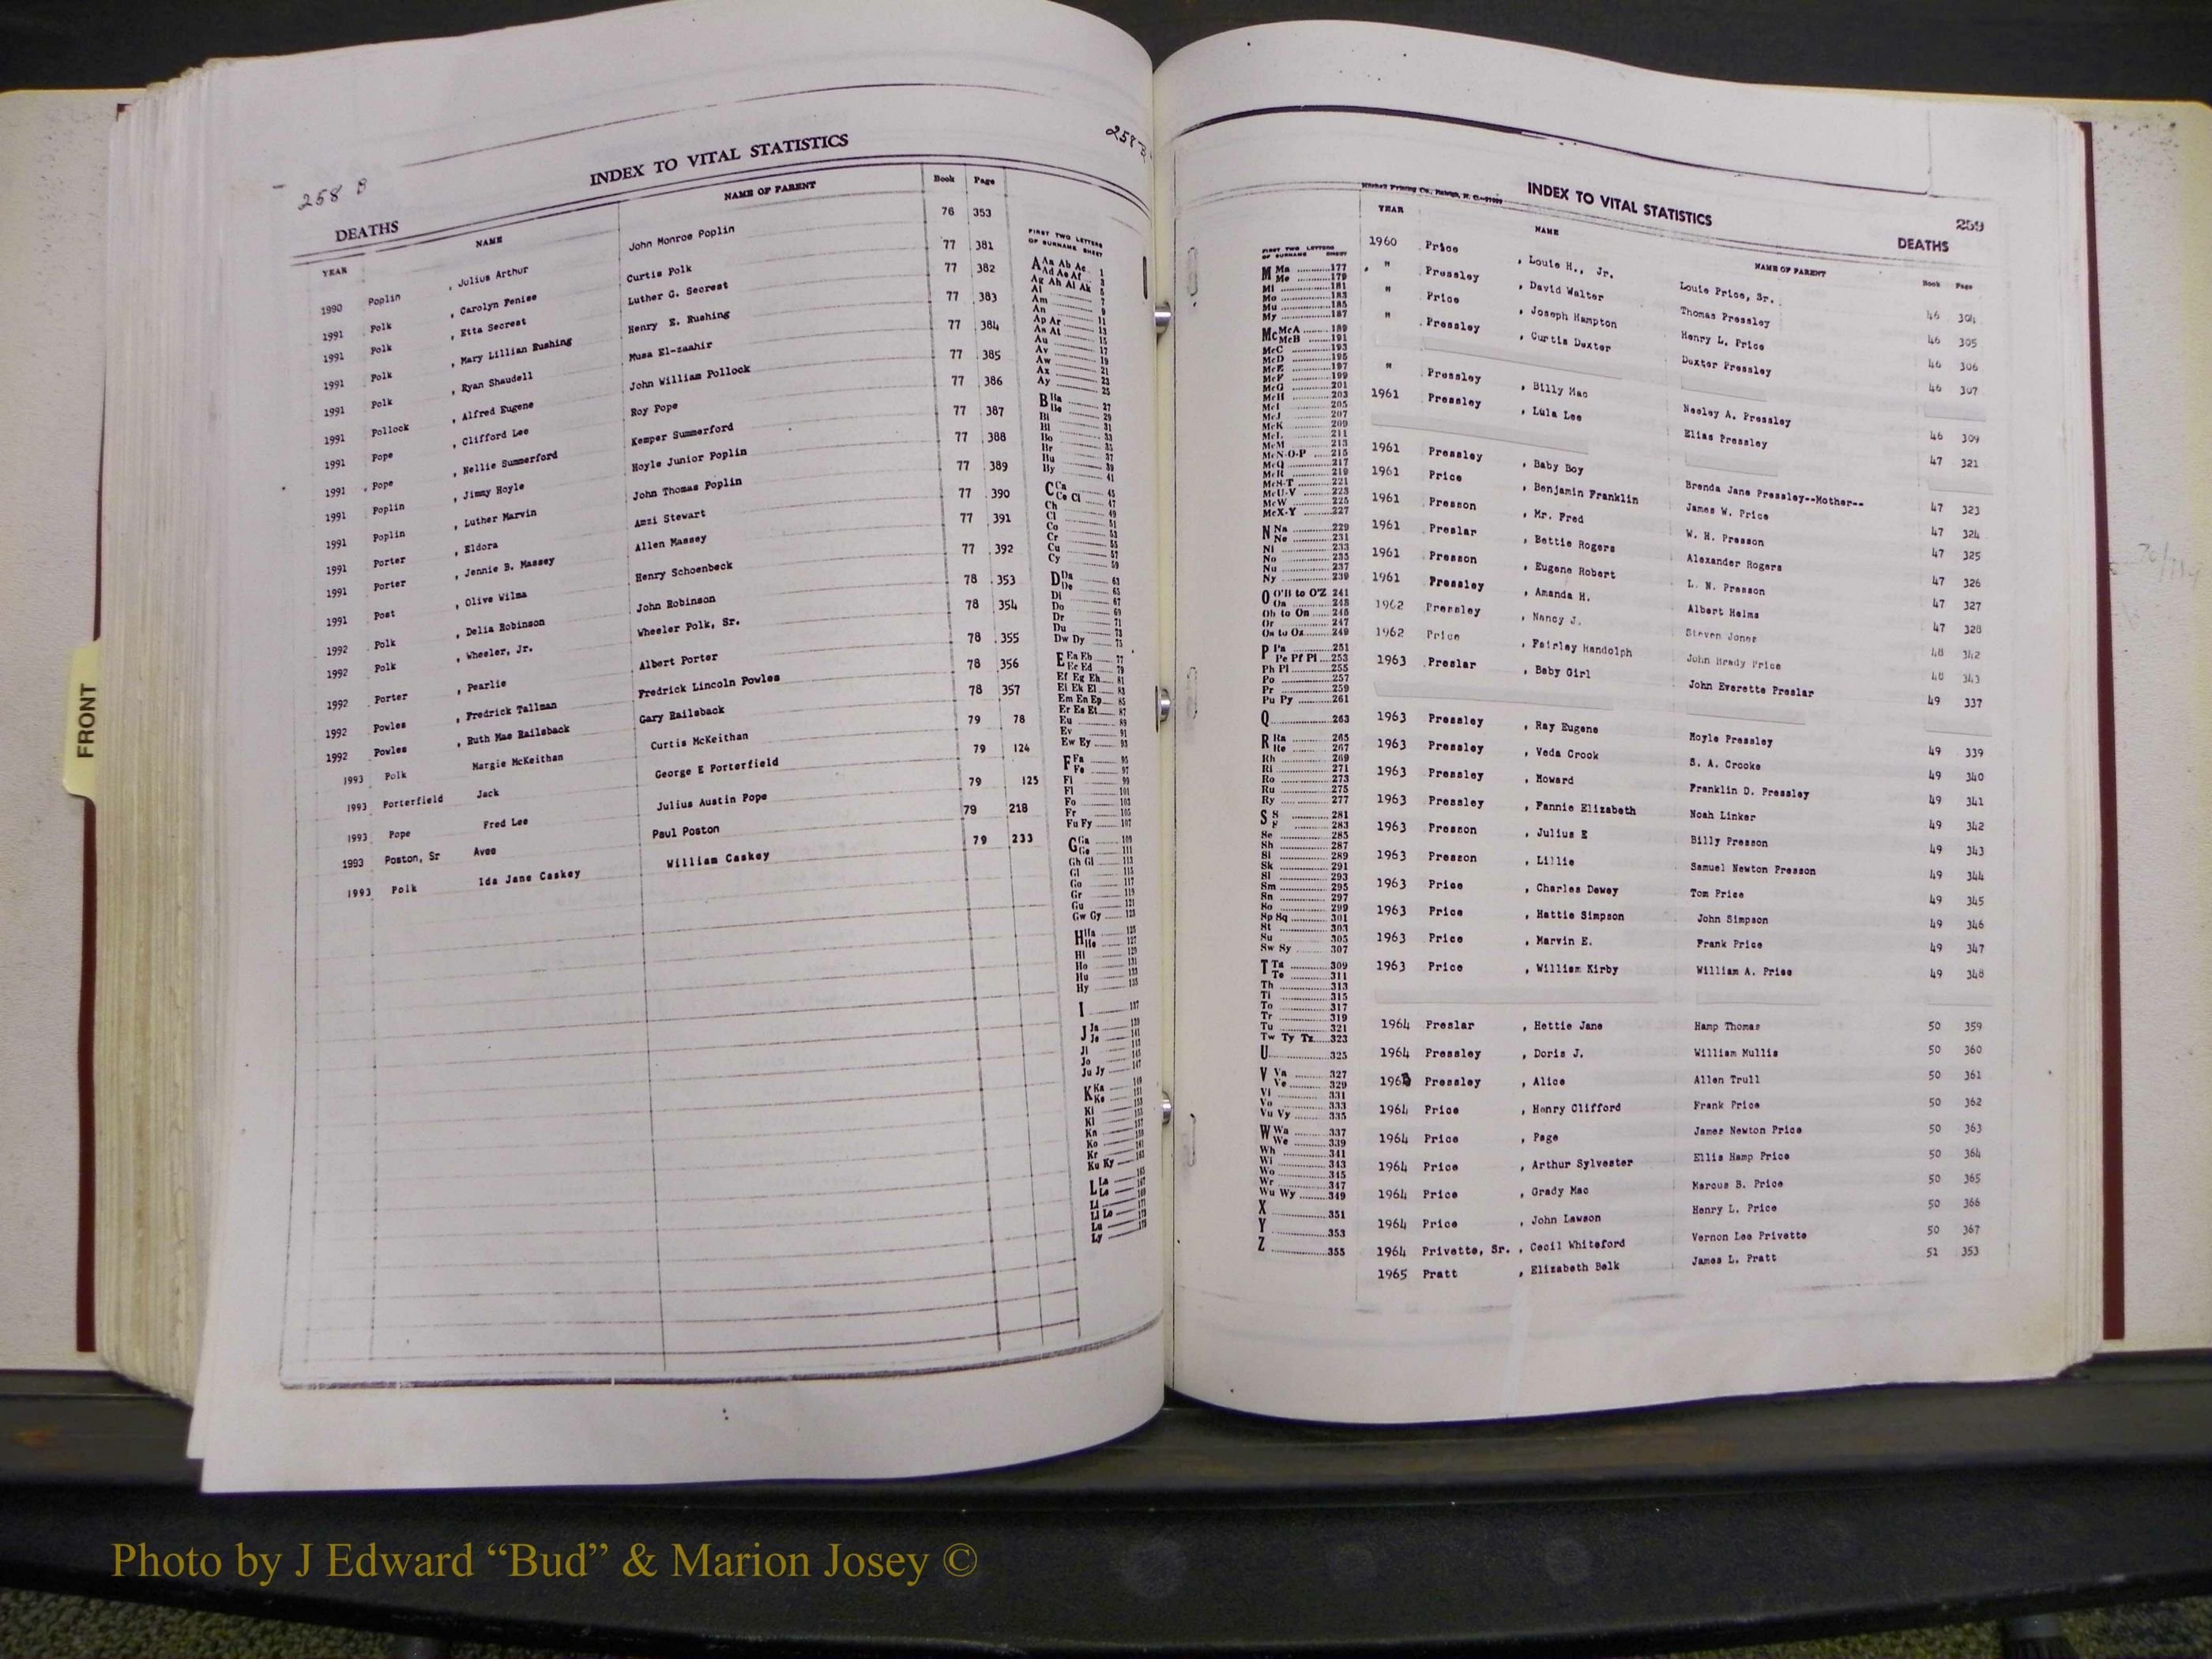 FRONT
258 B
DEATHS
INDEX TO VITAL STATISTICS
258-B
YEAR NAME NAME OF PARENT Book Page
1990 Poplin , Julius Arthur John Monroe Poplin 76 353
1991 Polk , Carolyn Fenise Curtis Polk 77 381
1991 Polk , Etta Secrest Luther G. Secrest 77 382
1991 Polk , Mary Lillian Rushing Henry E. Rushing 77 383
1991 Polk , Ryan Shaudell Musa El-zaahir 77 384
1991 Pollock , Alfred Eugene John William Pollock 77 385
1991 Pope , Clifford Lee Roy Pope 77 386
1991 Pope , Nellie Summerford Kemper Summerford 77 387
1991 Poplin , Jimmy Hoyle Hoyle Junior Poplin 77 388
1991 Poplin , Luther Marvin John Thomas Poplin 77 389
1991 Porter , Eldora Amzi Stewart 77 390
1991 Porter , Jennie B. Massey Allen Massey 77 391
1991 Post , Olive Wilma Henry Schoenbeck 77 392
1992 Polk , Delia Robinson John Robinson 78 353
1992 Polk , Wheeler, Jr. Wheeler Polk, Sr. 78 354
1992 Porter , Pearlie Albert Porter 78 355
1992 Powles , Fredrick Tallman Fredrick Lincoln Powles 78 356
1992 Powles , Ruth Mae Railsback Gary Railsback 78 357
1993 Polk Margie McKeithan Curtis McKeithan 79 78
1993 Porterfield Jack George E Porterfield 79 124
1993 Pope Fred Lee Julius Austin Pope 79 125
1993 Poston, Sr Avee Paul Poston 79 218
1993 Polk Ida Jane Caskey William Caskey 79 233
FIRST TWO LETTERS
OF SURNAME SHEET
A Aa Ab Ac 1
Ad Ae Af 3
Ag Ah Ai Ak 5
Al 7
Am 9
An 11
Ap Ar 13
As At 15
Au 17
Av 19
Aw 21
Ax 23
Ay 25
B Ba 27
Be 29
Bi 31
Bl 33
Bo 35
Br 37
Bu 39
By 41
C Ca 45
Ce Ci 47
Ch 49
Cl 51
Co 53
Cr 55
Cu 57
Cy 59
D Da 63
De 65
Di 67
Do 69
Dr 71
Du 73
Dw Dy 75
E Ea Eb 77
Ec Ed 79
Ef Eg Eh 81
Ei Ek El 83
Em En Ep 85
Er Es Et 87
Eu 89
Ev 91
Ew Ey 93
F Fa 95
Fe 97
Fi 99
Fl 101
Fo 103
Fr 105
Fu Fy 107
G Ga 109
Ge 111
Gh Gi 113
Gl 115
Go 117
Gr 119
Gu 121
Gw Gy 123
H Ha 125
He 127
Hi 129
Ho 131
Hu 133
Hy 135
I 137
J Ja 139
Je 141
Ji 143
Jo 145
Ju Jy 147
K Ka 149
Ke 151
Ki 153
Kl 157
Kn 159
Ko
Kr
Ku Ky 163
L La 165
Le 167
Li
Ll Lo
Lu
Ly
INDEX TO VITAL STATISTICS
259
DEATHS
FIRST TWO LETTERS
OF SURNAME SHEET
M Ma 177
Me 179
Mi 181
Mo 183
Mu 185
My 187
Mc McA 189
McB 191
McC 193
McD 195
McE 197
McF 199
McG 201
McH 203
McI 205
McJ 207
McK 209
McL 211
McM 213
McN-O-P 215
McQ 217
McR 219
McS-T 221
McU-V 223
McW 225
McX-Y 227
N Na 229
Ne 231
Ni 233
No 235
Nu 237
Ny 239
O O'B to O'Z 241
Oa 243
Ob to On 245
Or 247
Os to Oz 249
P Pa 251
Pe Pf Pi 253
Ph Pl 255
Po 257
Pr 259
Pu Py 261
Q 263
R Ra 265
Re 267
Rh 269
Ri 271
Ro 273
Ru 275
Ry 277
S S 281
283
Se 285
Sh 287
Si 289
Sk 291
Sl 293
Sm 295
Sn 297
So 299
Sp Sq 301
St 303
Su 305
Sw Sy 307
T Ta 309
Te 311
Th 313
Ti 315
To 317
Tr 319
Tu 321
Tw Ty Tz 323
U 325
V Va 327
Ve 329
Vi 331
Vo 333
Vu Vy 335
W Wa 337
We 339
Wh 341
Wi 343
Wo 345
Wr 347
Wu Wy 349
X 351
Y 353
Z 355
YEAR NAME NAME OF PARENT Book Page
1960 Price , Louie H., Jr. Louie Price, Sr. 46 304
" Pressley , David Walter Thomas Pressley 46 305
" Price , Joseph Hampton Henry L. Price 46 306
" Pressley , Curtis Duxter Duxter Pressley 46 307
" Pressley , Billy Mac Neeley A. Pressley 46 309
1961 Pressley , Lula Lee Elias Pressley 47 321
1961 Pressley , Baby Boy Brenda Jane Pressley--Mother-- 47 323
1961 Price , Benjamin Franklin James W. Price 47 324
1961 Presson , Mr. Fred W. H. Presson 47 325
1961 Preslar , Bettie Rogers Alexander Rogers 47 326
1961 Presson , Eugene Robert L. N. Presson 47 327
1961 Pressley , Amanda H. Albert Helms 47 328
1962 Pressley , Nancy J. Steven Jones 48 342
1962 Price , Fairley Randolph John Brady Price 48 343
1963 Preslar , Baby Girl John Everette Preslar 49 337
1963 Pressley , Ray Eugene Hoyle Pressley 49 339
1963 Pressley , Veda Crook S. A. Crooke 49 340
1963 Pressley , Howard Franklin D. Pressley 49 341
1963 Pressley , Fannie Elizabeth Noah Linker 49 342
1963 Presson , Julius E Billy Presson 49 343
1963 Presson , Lillie Samuel Newton Presson 49 344
1963 Price , Charles Dewey Tom Price 49 345
1963 Price , Hattie Simpson John Simpson 49 346
1963 Price , Marvin E. Frank Price 49 347
1963 Price , William Kirby William A. Price 49 348
1964 Preslar , Hettie Jane Hamp Thomas 50 359
1964 Pressley , Doris J. William Mullis 50 360
196 Pressley , Alice Allen Trull 50 361
1964 Price , Henry Clifford Frank Price 50 362
1964 Price , Page James Newton Price 50 363
1964 Price , Arthur Sylvester Ellis Hamp Price 50 364
1964 Price , Grady Mac Marcus B. Price 50 365
1964 Price , John Lawson Henry L. Price 50 366
1964 Privette, Sr. , Cecil Whiteford Vernon Lee Privette 50 367
1965 Pratt , Elizabeth Belk James L. Pratt 51 353
Photo by J Edward “Bud” & Marion Josey ©